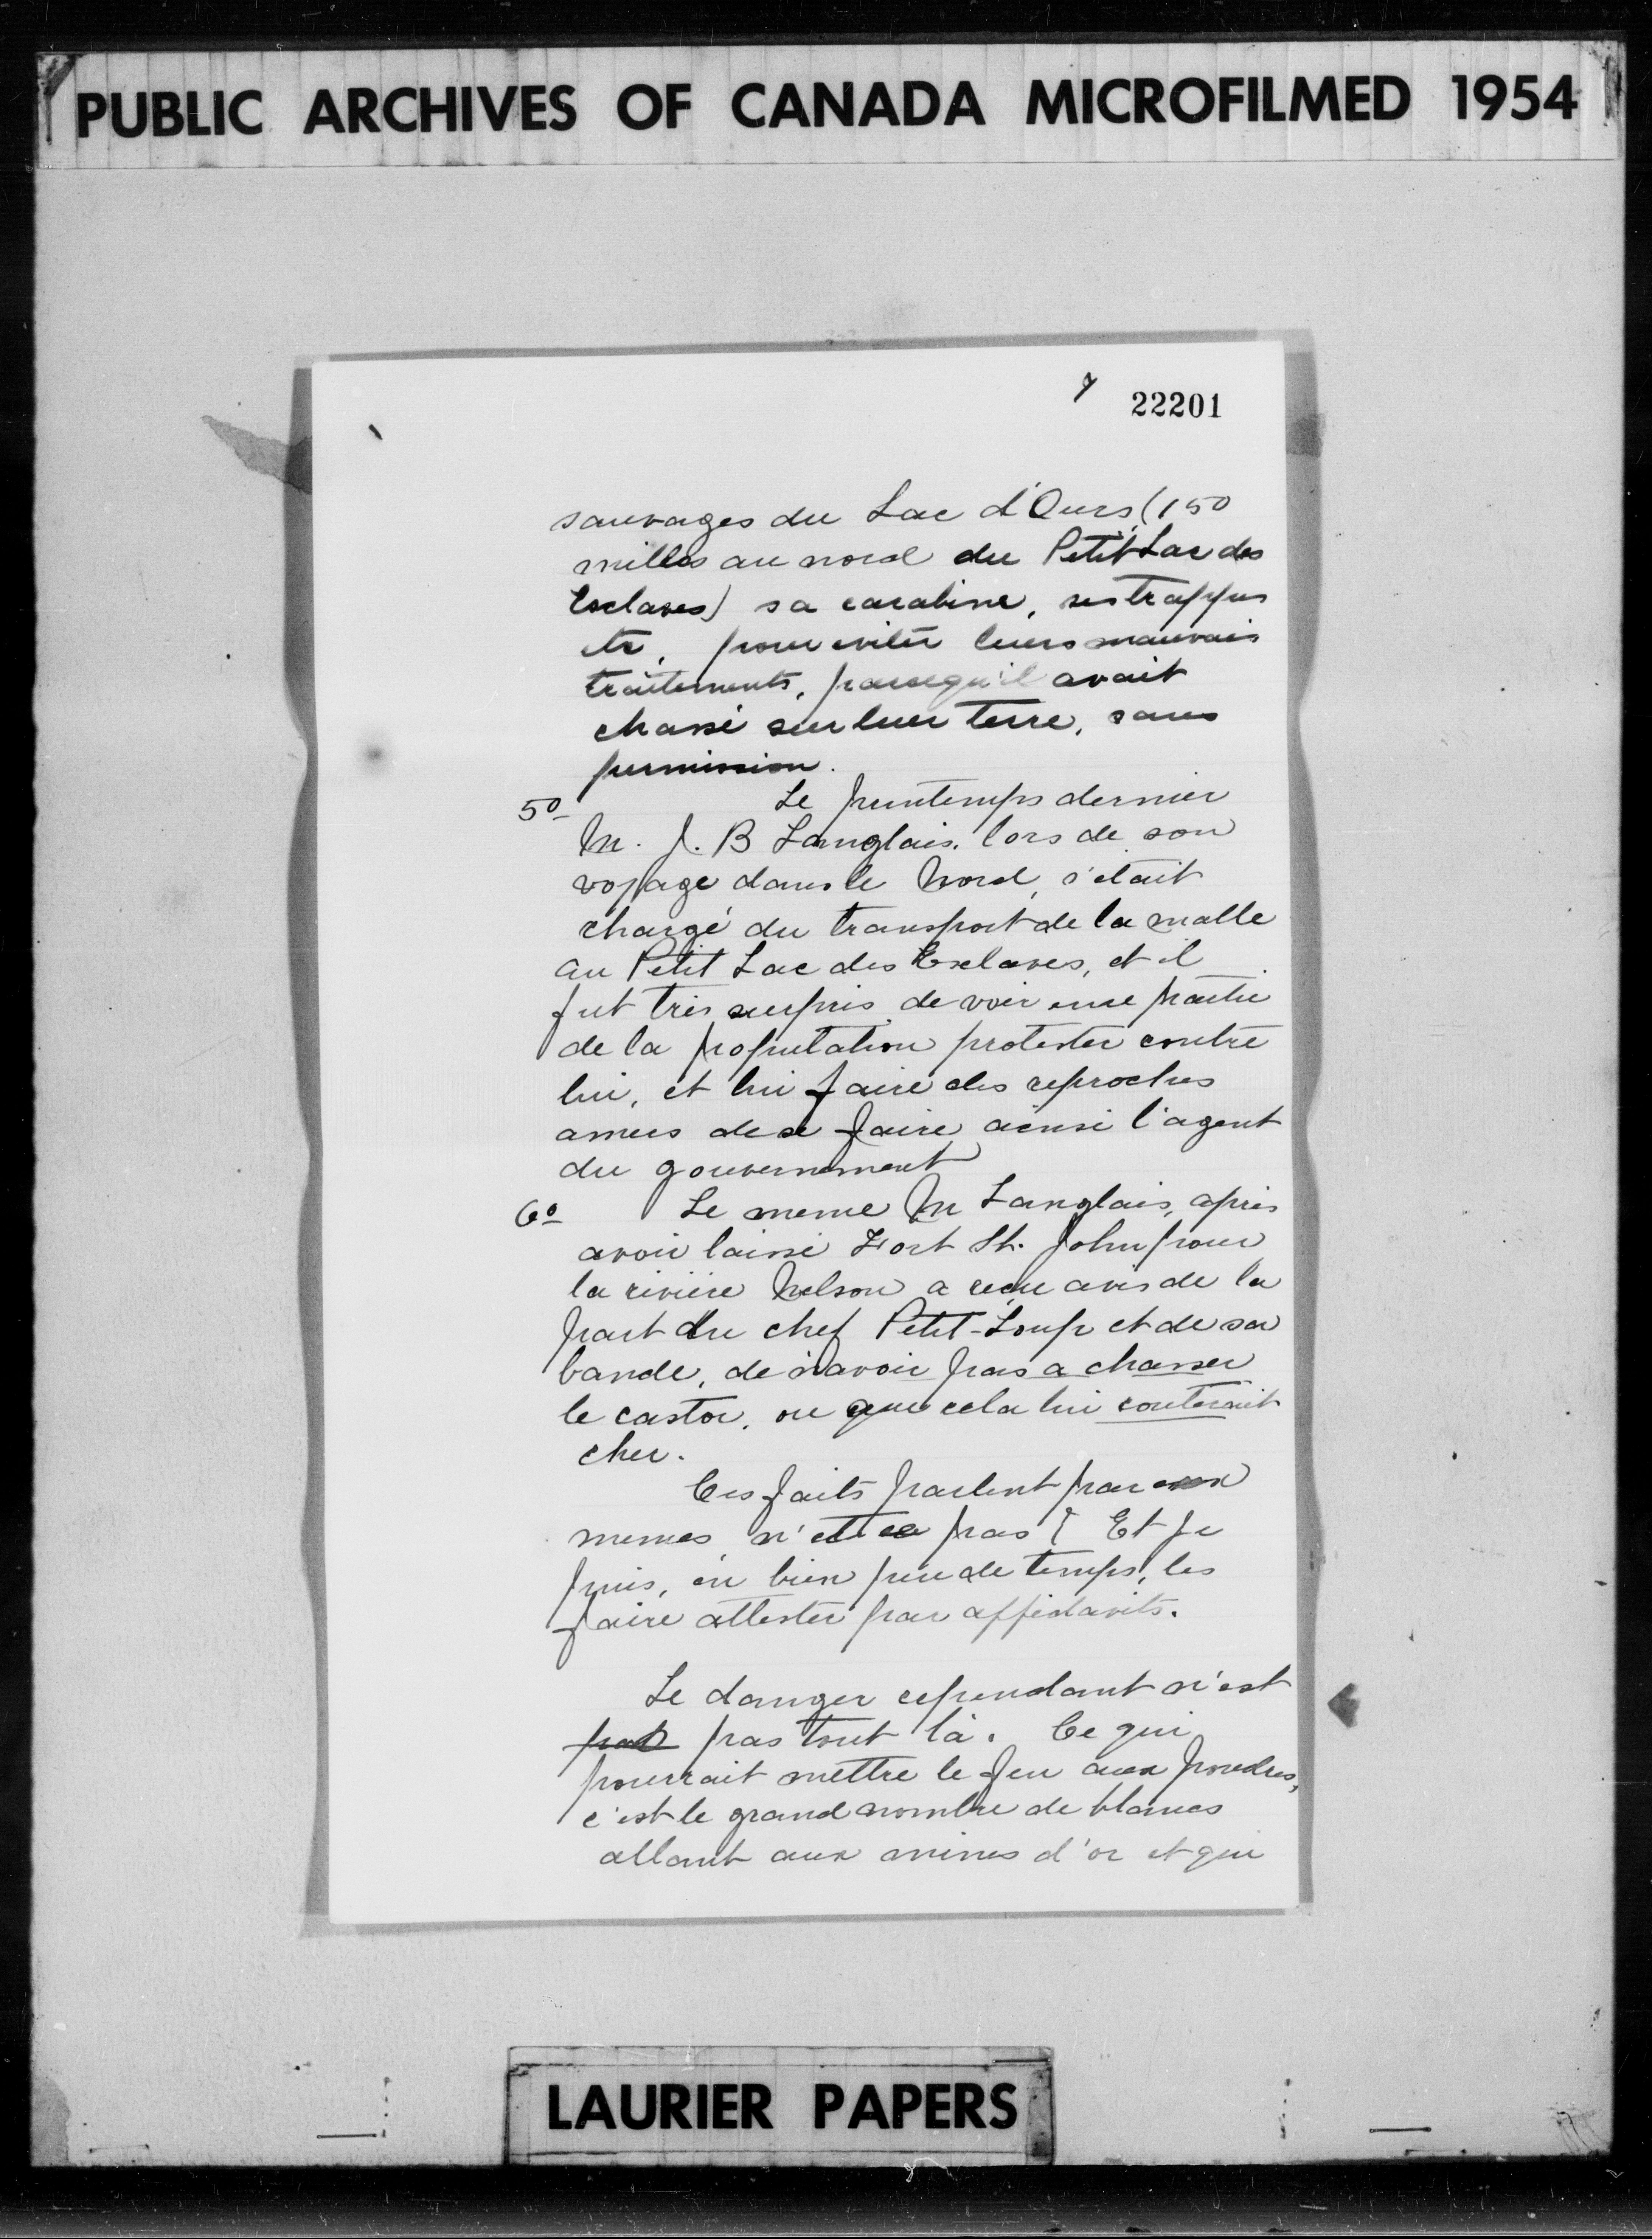 PUBLIC ARCHIVES OF CANADA MICROFILMED 1954
7
22201
sauvages du Lac d'Ours, (150
milles au nord du Petit Lac des
Esclaves) sa carabine, ses trappes
etc, pour eviter leurs mauvais
traitements, parcequ'il avait
chassé sur leur terre, sans
permission.
5º Le printemps dernier
M. J. B Langlais, lors de son
voyage dans le Nord, s'etait
chargé du transport de la malle
au Petit Lac des Esclaves, et il
fut très surpris de voir une partie
de la population protester contre
lui, et lui faire des reproches
amers de se faire ainsi l'agent
du gouvernement
6º Le meme M Langlais, après
avoir laissé Fort St. John pour
la rivière Nelson a reçu avis de la
part du chef Petit-Loup et de sa
bande, de n'avoir pas a chasser
le castor, ou que cela lui couterait
cher.
Ces faits parlent par eux
memes, n'est ce pas? Et je
puis, en bien peu de temps, les
faire attester par affidavits.
Le danger cependant n'est
pas pas tout là. Ce qui
pourrait mettre le feu aux poudres,
c'est le grand nombre de blancs
allant aux mines d'or et qui
LAURIER PAPERS